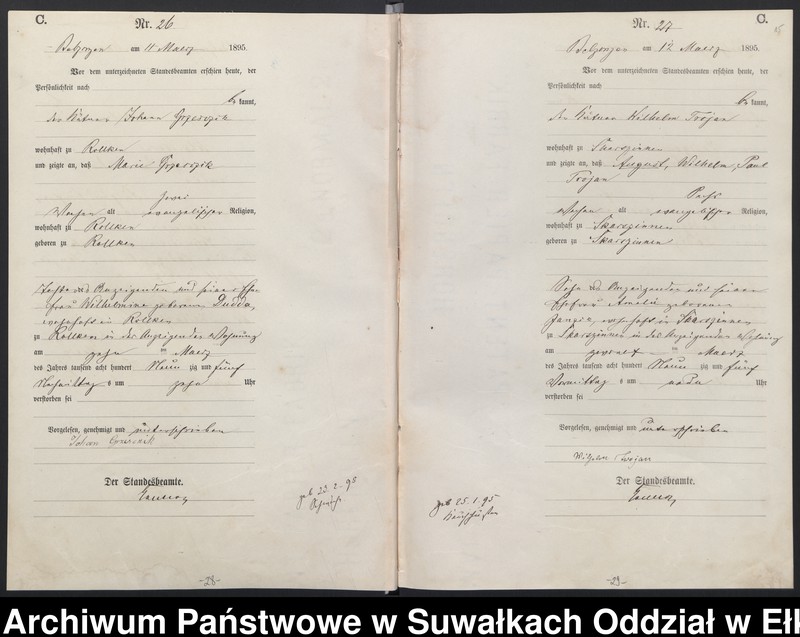 C.
Nr. 26
am 11 Maerz 1895.
Vor dem unterzeichneten Standesbeamten erschien heute, der
Persönlichkeit nach
be kannt,
Johann
wohnhaft zu Rollken
und zeigte an, daß Marie
zwei
Wochen alt evangelischer Religion,
wohnhaft zu Rollken
geboren zu Rollken
Tochter des Anzeigenden und seiner Ehe
frau Wilhelmine geborenen Dudda,
wohnhaft in Rollken
zu Rollken in des Anzeigenden Wohnung
am zehn ten Maerz
des Jahres tausend acht hundert Neun zig und fünf
Nachmittag s um zehn Uhr
verstorben sei
Vorgelesen, genehmigt und unterschrieben
Johann
Der Standesbeamte.
geb 23.2.95
-28-
Nr. 27
C.
am 12 Maerz 1895.
Vor dem unterzeichneten Standesbeamten erschien heute, der
Persönlichkeit nach
be kannt,
der Wilhelm Trojan
wohnhaft zu Skarszinnen
und zeigte an, daß August, Wilhelm, Paul
Trojan
sechs
Wochen alt evangelischer Religion,
wohnhaft zu Skarszinnen
geboren zu Skarszinnen
Sohn des Anzeigenden und seiner
Ehefrau Amalie geborenen
wohnhaft in Skarszinnen
zu Skarszinnen in des Anzeigenden Wohnung
am ten Maerz
des Jahres tausend acht hundert Neun zig und fünf
Vormittag s um neun Uhr
verstorben sei
Vorgelesen, genehmigt und unterschrieben
Wilhelm Trojan
Der Standesbeamte.
geb 25.1.95
-29-
Archiwum Państwowe w Suwałkach Oddział w Ełk